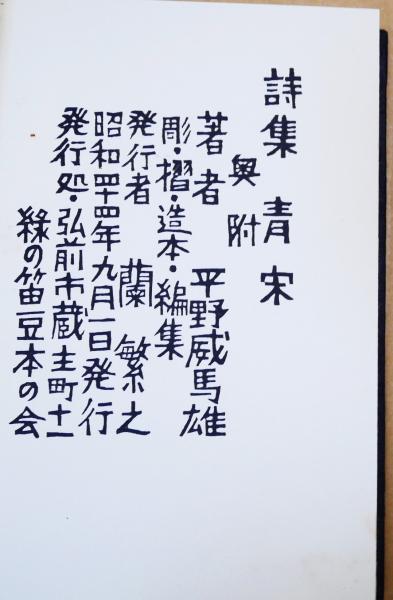 詩集 青宋
奥附
著者 平野威馬雄
彫・摺・造本・編集
発行者 蘭繁之
昭和四十四年九月一日発行
発行処・弘前市蔵主町十一
緑の笛豆本の会